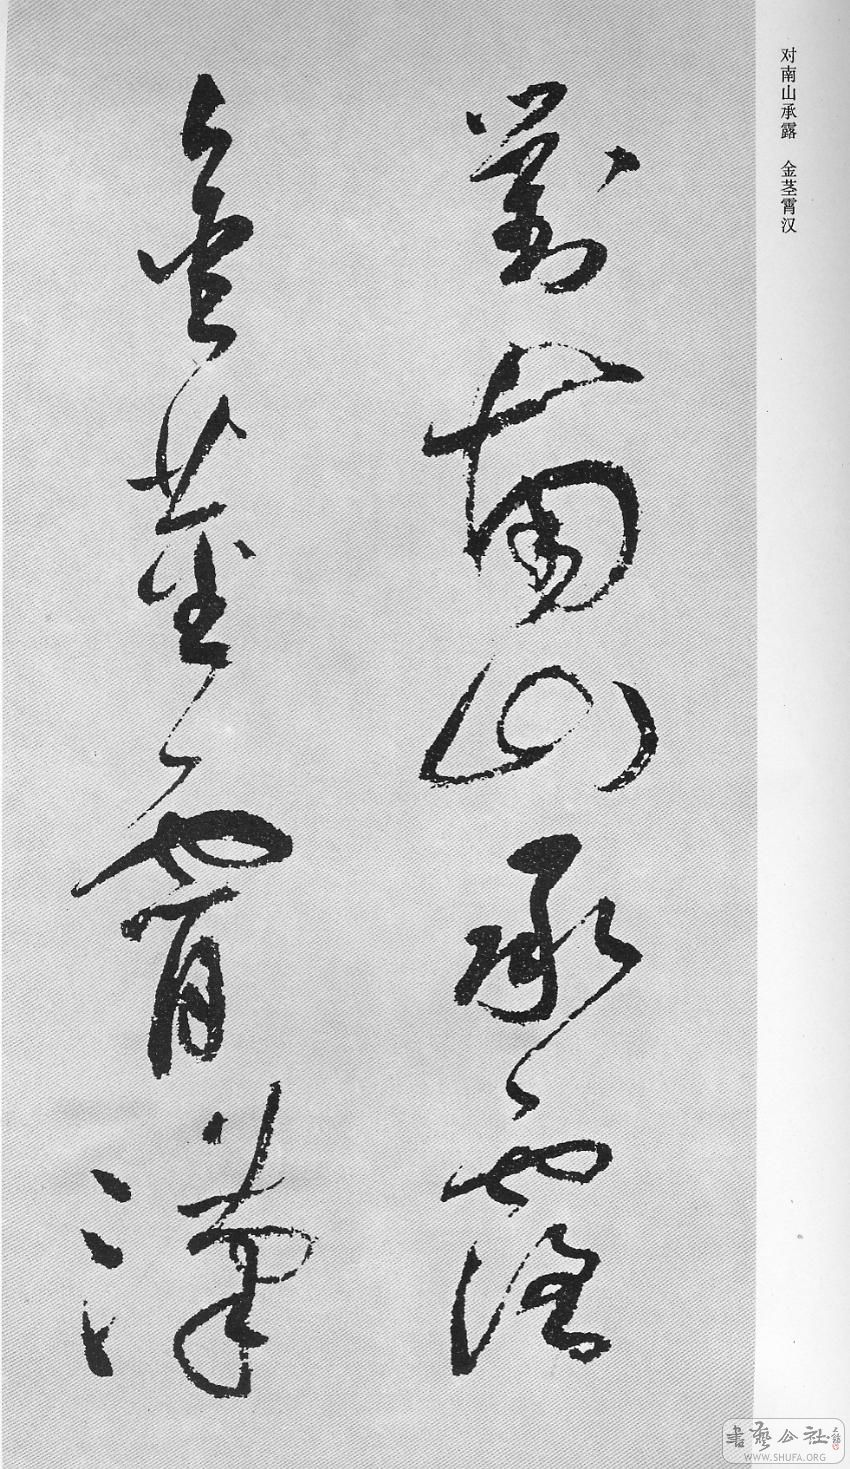 对南山承露 金茎霄汉
對南山承露
金莖霄漢
書藝公社
WWW.SHUFA.ORG